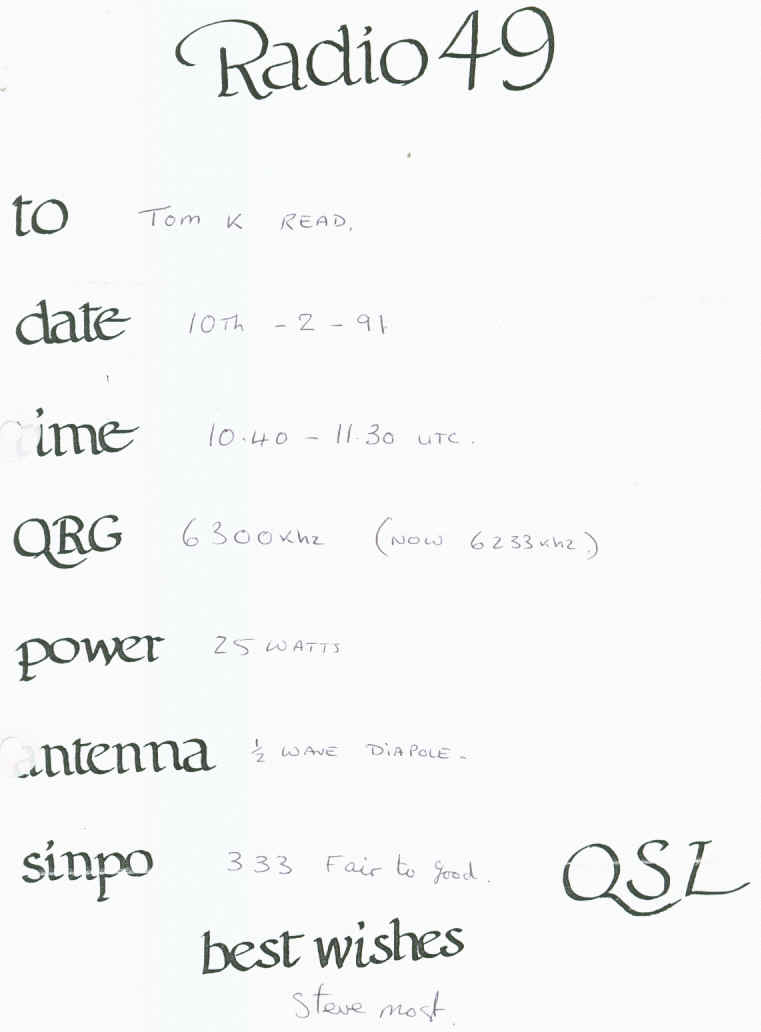 Radio 49
to Tom K READ.
date 10Th - 2 - 91
ime 10.40 - 11.30 UTC.
QRG 6300Khz (NOW 6233Khz.)
power 25 WATTS
antenna ½ WAVE DIAPOLE.
sinpo 333 Fair to good.
QSL
best wishes
Steve most.